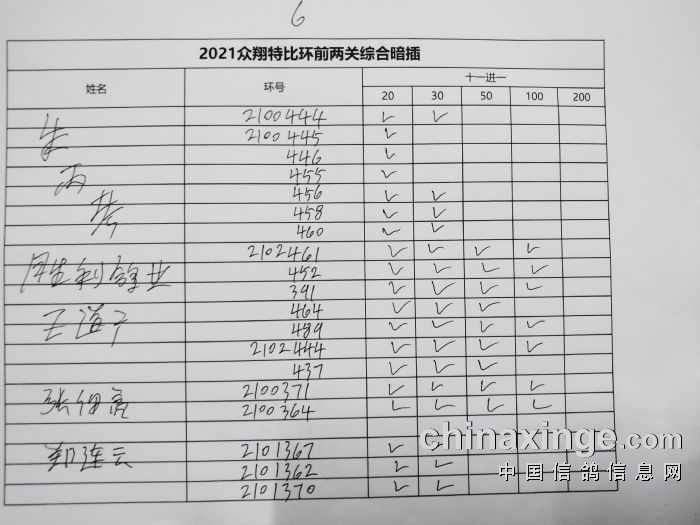 6
2021众翔特比环前两关综合暗插
姓名 环号 十一进一
20 30 50 100 200
2100444 ✓ ✓
2100445 ✓
446 ✓
455 ✓
456 ✓ ✓
458 ✓ ✓
460 ✓ ✓
2102461 ✓ ✓ ✓ ✓
452 ✓ ✓ ✓ ✓
391 ✓ ✓ ✓ ✓
464 ✓ ✓ ✓
489 ✓ ✓ ✓ ✓
2102444 ✓ ✓ ✓ ✓
437 ✓ ✓ ✓
2100371 ✓ ✓ ✓ ✓
2100364 ✓ ✓ ✓ ✓
郑连云 2101367 ✓ ✓
2101362 ✓ ✓
2101370 ✓ ✓
chinaxinge.com
中国信鸽信息网